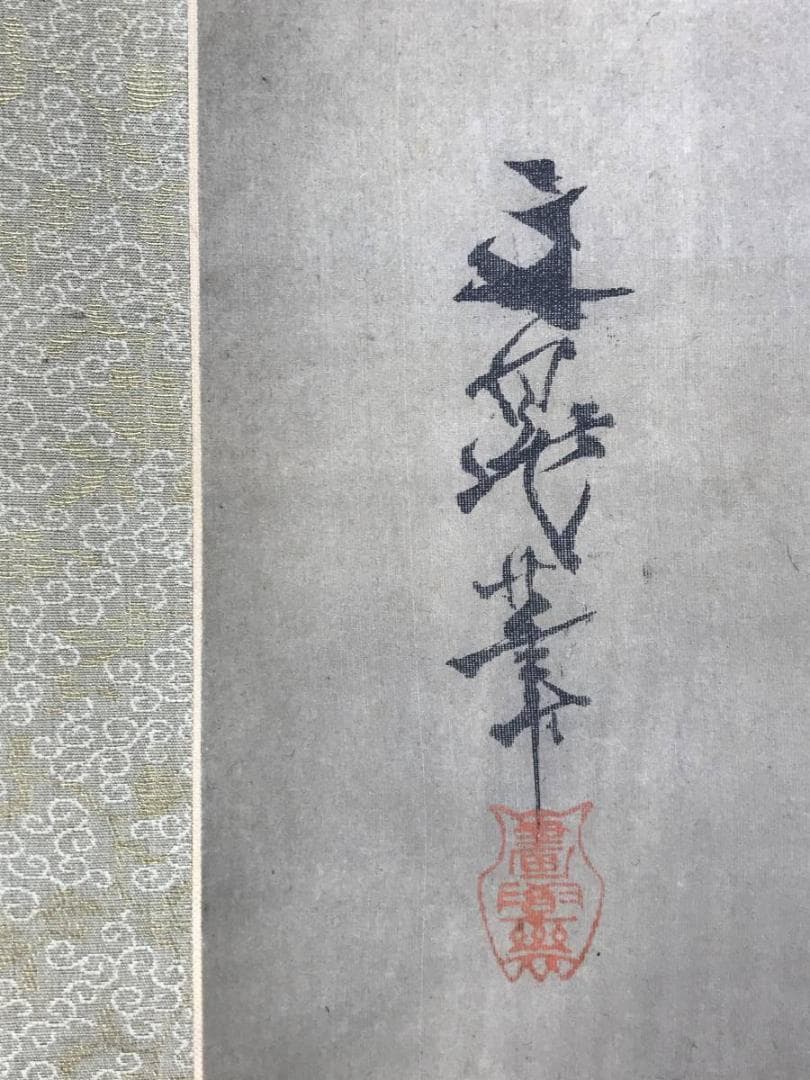 文晁筆
畫學齋